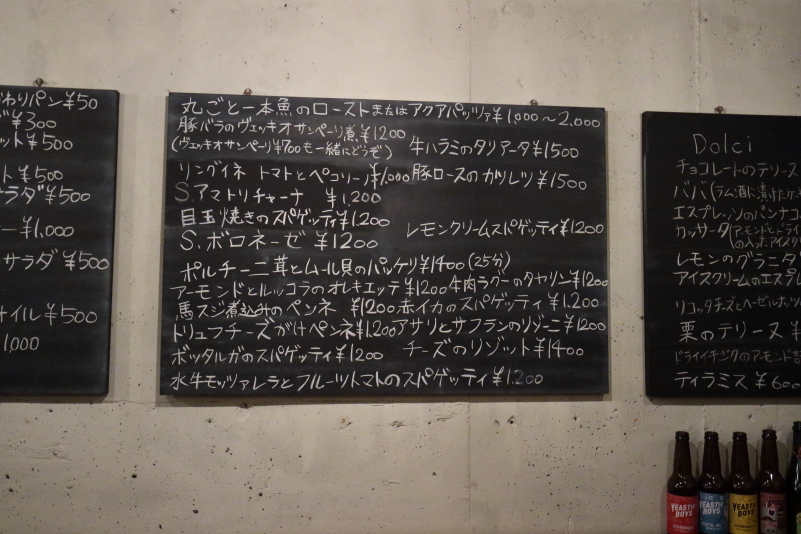 わりパン¥50
¥300
ット¥500
ト¥500
ラダ¥500
ー¥1,000
サラダ¥500
オイル¥500
1,000
丸ごと一本魚のローストまたはアクアパッツァ¥1,000～2,000
豚バラのヴェッキオサンペーリ煮¥1200
(ヴェッキオサンペーリ¥700も一緒にどうぞ)
牛ハラミのタリアータ¥1500
リングイネ トマトとペコリーノ¥1,000
豚ロースのカツレツ¥1500
S.アマトリチャーナ ¥1,200
目玉焼きのスパゲッティ¥1,200
レモンクリームスパゲッティ¥1200
S.ボロネーゼ ¥1200
ポルチーニ茸とムール貝のパッケリ¥1400(25分)
アーモンドとルッコラのオレキエッテ¥1200
牛肉ラグーのタヤリン¥1200
馬スジ煮込みのペンネ ¥1200
赤イカのスパゲッティ ¥1,200
トリュフチーズがけペンネ¥1,200
アサリとサフランのリゾーニ¥1200
ボッタルガのスパゲッティ¥1200
チーズのリゾット¥1400
水牛モッツァレラとフルーツトマトのスパゲッティ¥1,200
Dolci
チョコレートのテリーヌ
ババ(ラム酒に漬けた
エスプレッソのパンナコ
カッサータ(アーモンドとドライ
の入ったアイスク
レモンのグラニタ
アイスクリームのエスプレ
リコッタチーズとヘーゼルナッツ
栗のテリーヌ ¥
ドライイチジクのアーモンド
ティラミス ¥600
YEASTIE BOYS
YEASTIE BOYS
YEASTIE BOYS